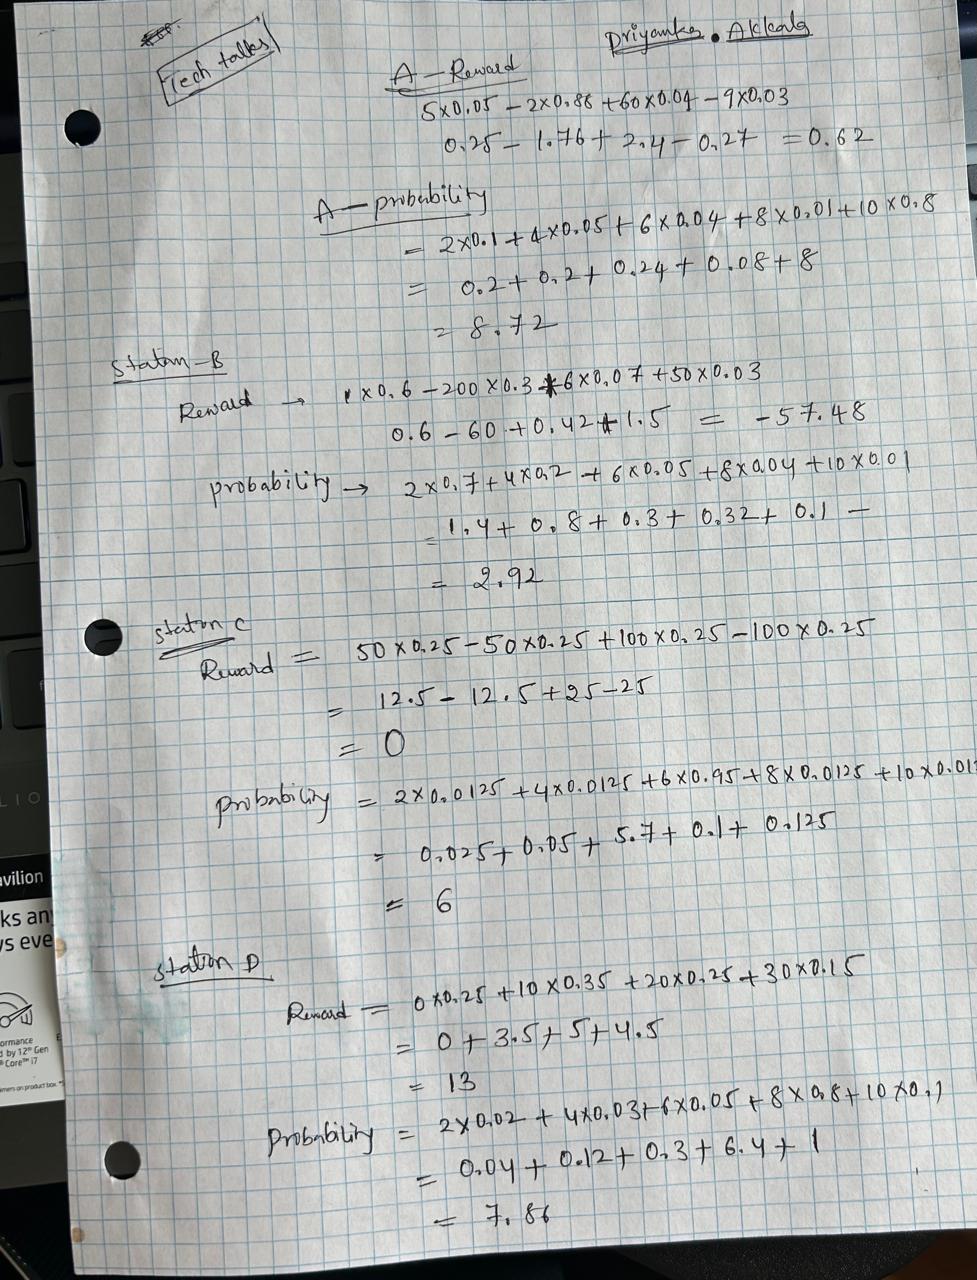 Tech talks
Priyanka. Akkala
A - Reward
5x0.05 - 2x0.88 + 60x0.04 - 9x0.03
0.25 - 1.76 + 2.4 - 0.27 = 0.62
A - probability
= 2x0.1 + 4x0.05 + 6x0.04 + 8x0.01 + 10x0.8
= 0.2 + 0.2 + 0.24 + 0.08 + 8
= 8.72
Station - B
Reward → 1x0.6 - 200x0.3 + 6x0.07 + 50x0.03
0.6 - 60 + 0.42 + 1.5 = -57.48
probability → 2x0.7 + 4x0.2 + 6x0.05 + 8x0.04 + 10x0.01
= 1.4 + 0.8 + 0.3 + 0.32 + 0.1 -
= 2.92
station C
Reward = 50x0.25 - 50x0.25 + 100x0.25 - 100x0.25
= 12.5 - 12.5 + 25 - 25
= 0
probability = 2x0.0125 + 4x0.0125 + 6x0.95 + 8x0.0125 + 10x0.01
= 0.025 + 0.05 + 5.7 + 0.1 + 0.125
= 6
station D
Reward = 0x0.25 + 10x0.35 + 20x0.25 + 30x0.15
= 0 + 3.5 + 5 + 4.5
= 13
Probability = 2x0.02 + 4x0.03 + 6x0.05 + 8x0.8 + 10x0.1
= 0.04 + 0.12 + 0.3 + 6.4 + 1
= 7.86
LIO
avilion
ks an
ys eve
ormance
d by 12th Gen
Core™ i7